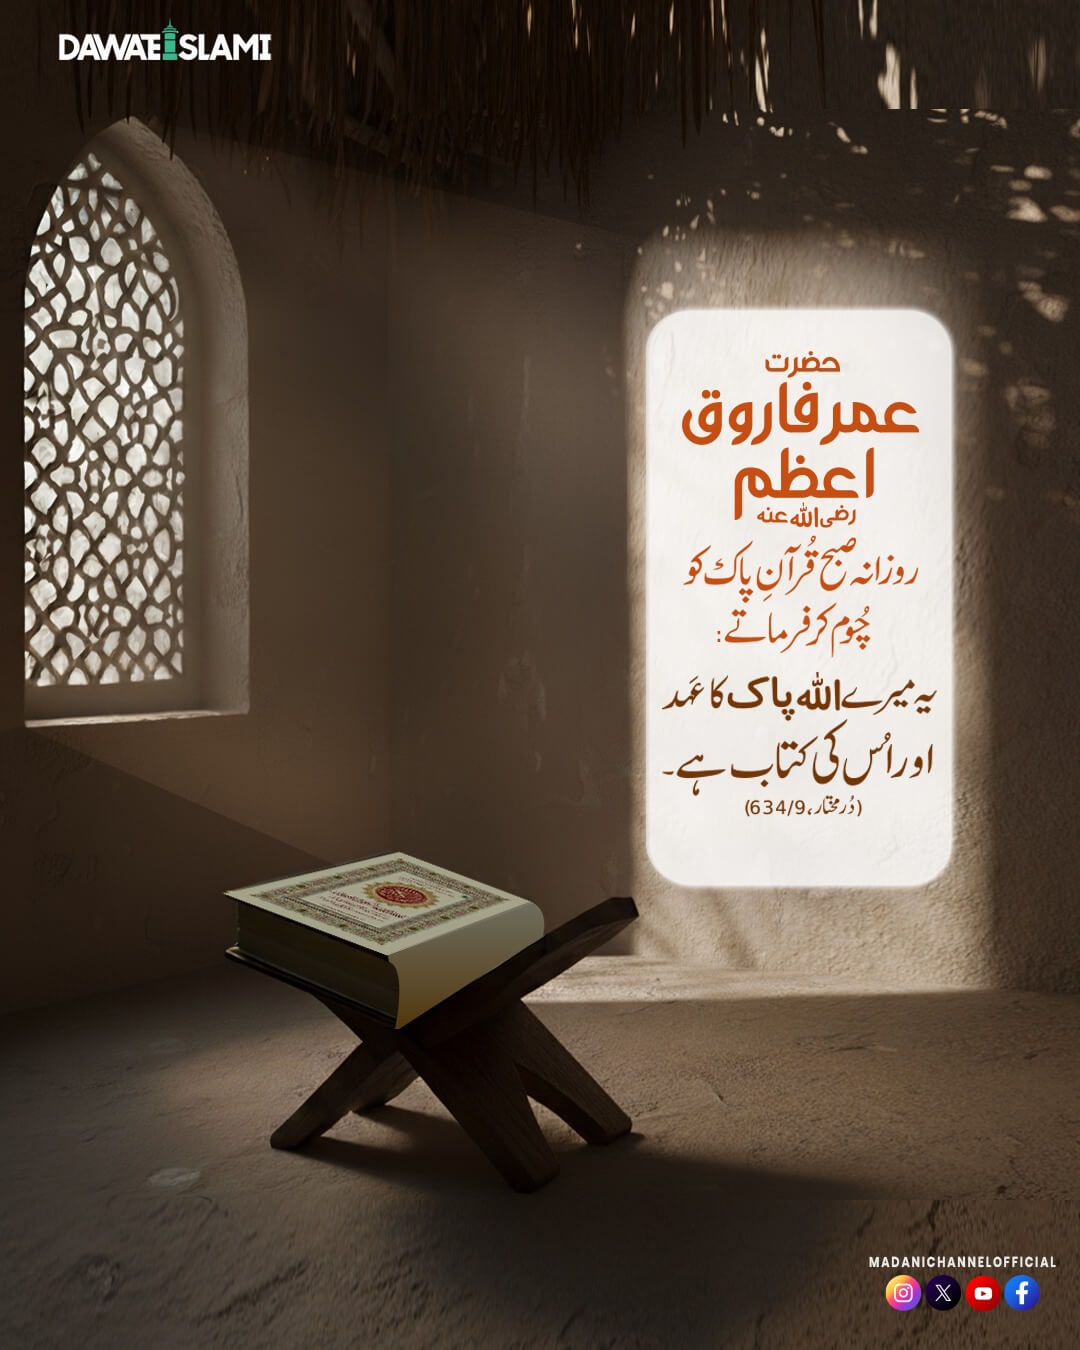 DAWATEISLAMI
حضرت
عمر فاروق
اعظم
رضی اللہ عنہ
روزانہ صبح قُرآنِ پاک کو
چُوم کر فرماتے:
یہ میرے اللہ پاک کا عَہد
اور اُس کی کتاب ہے۔
(دُرمختار، 634/9)
MADANICHANNELOFFICIAL